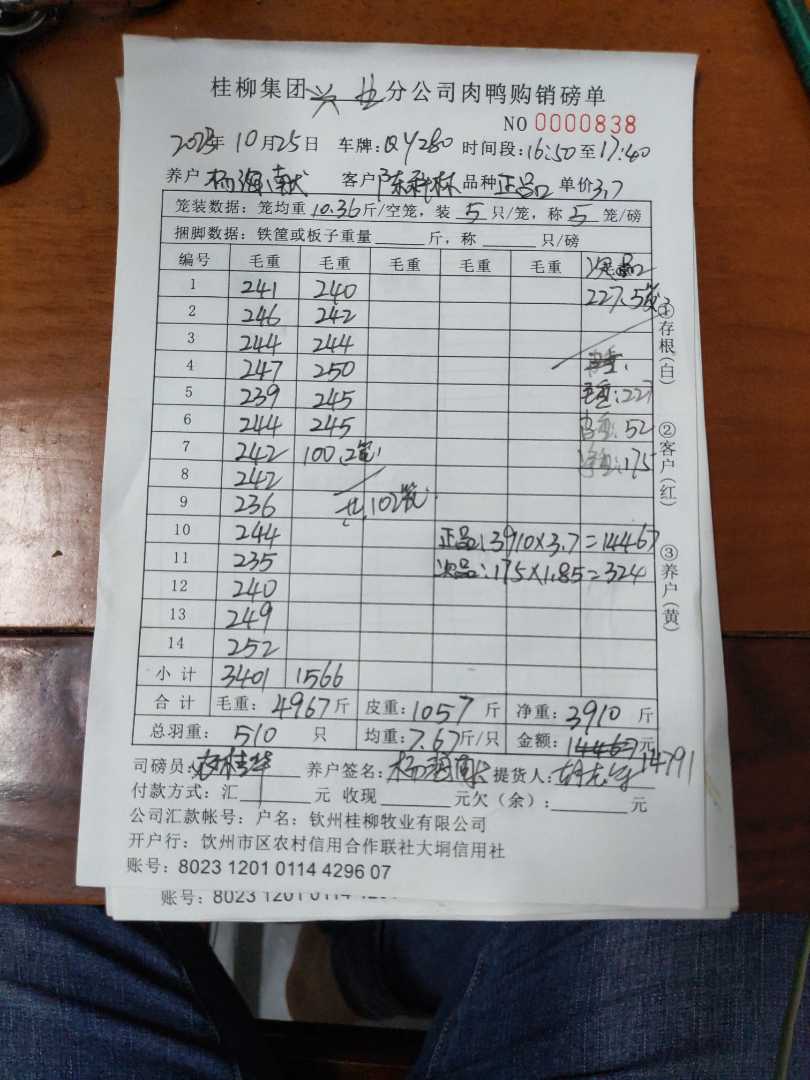 桂柳集团兴业分公司肉鸭购销磅单
NO 0000838
2023年10月25日 车牌:QY280 时间段:16:50至17:40
养户 杨海献 客户 陈科林 品种 正品 单价3.7
笼装数据:笼均重10.36斤/空笼,装5只/笼,称5笼/磅
捆脚数据:铁筐或板子重量 斤,称 只/磅
编号 毛重 毛重 毛重 毛重 毛重 次品
1 241 240 227.5
2 246 242
3 244 244
4 247 250
5 239 245 毛重:227
6 244 245 皮重:52
7 242 100.2笼 净重:175
8 242
9 236 共102笼
10 244 正品:3910×3.7=14467
11 235 次品:175×1.85=324
12 240
13 249
14 252
小计 3401 1566
合计 毛重:4967斤 皮重:1057斤 净重:3910斤
总羽重:510只 均重:7.67斤/只 金额:14467元
14791
司磅员: 养户签名: 提货人:
付款方式:汇 元 收现 元欠(余): 元
公司汇款帐号:户名:钦州桂柳牧业有限公司
开户行:钦州市区农村信用合作联社大垌信用社
账号:8023 1201 0114 4296 07
账号:8023 1201 0114
①存根(白)
②客户(红)
③养户(黄)